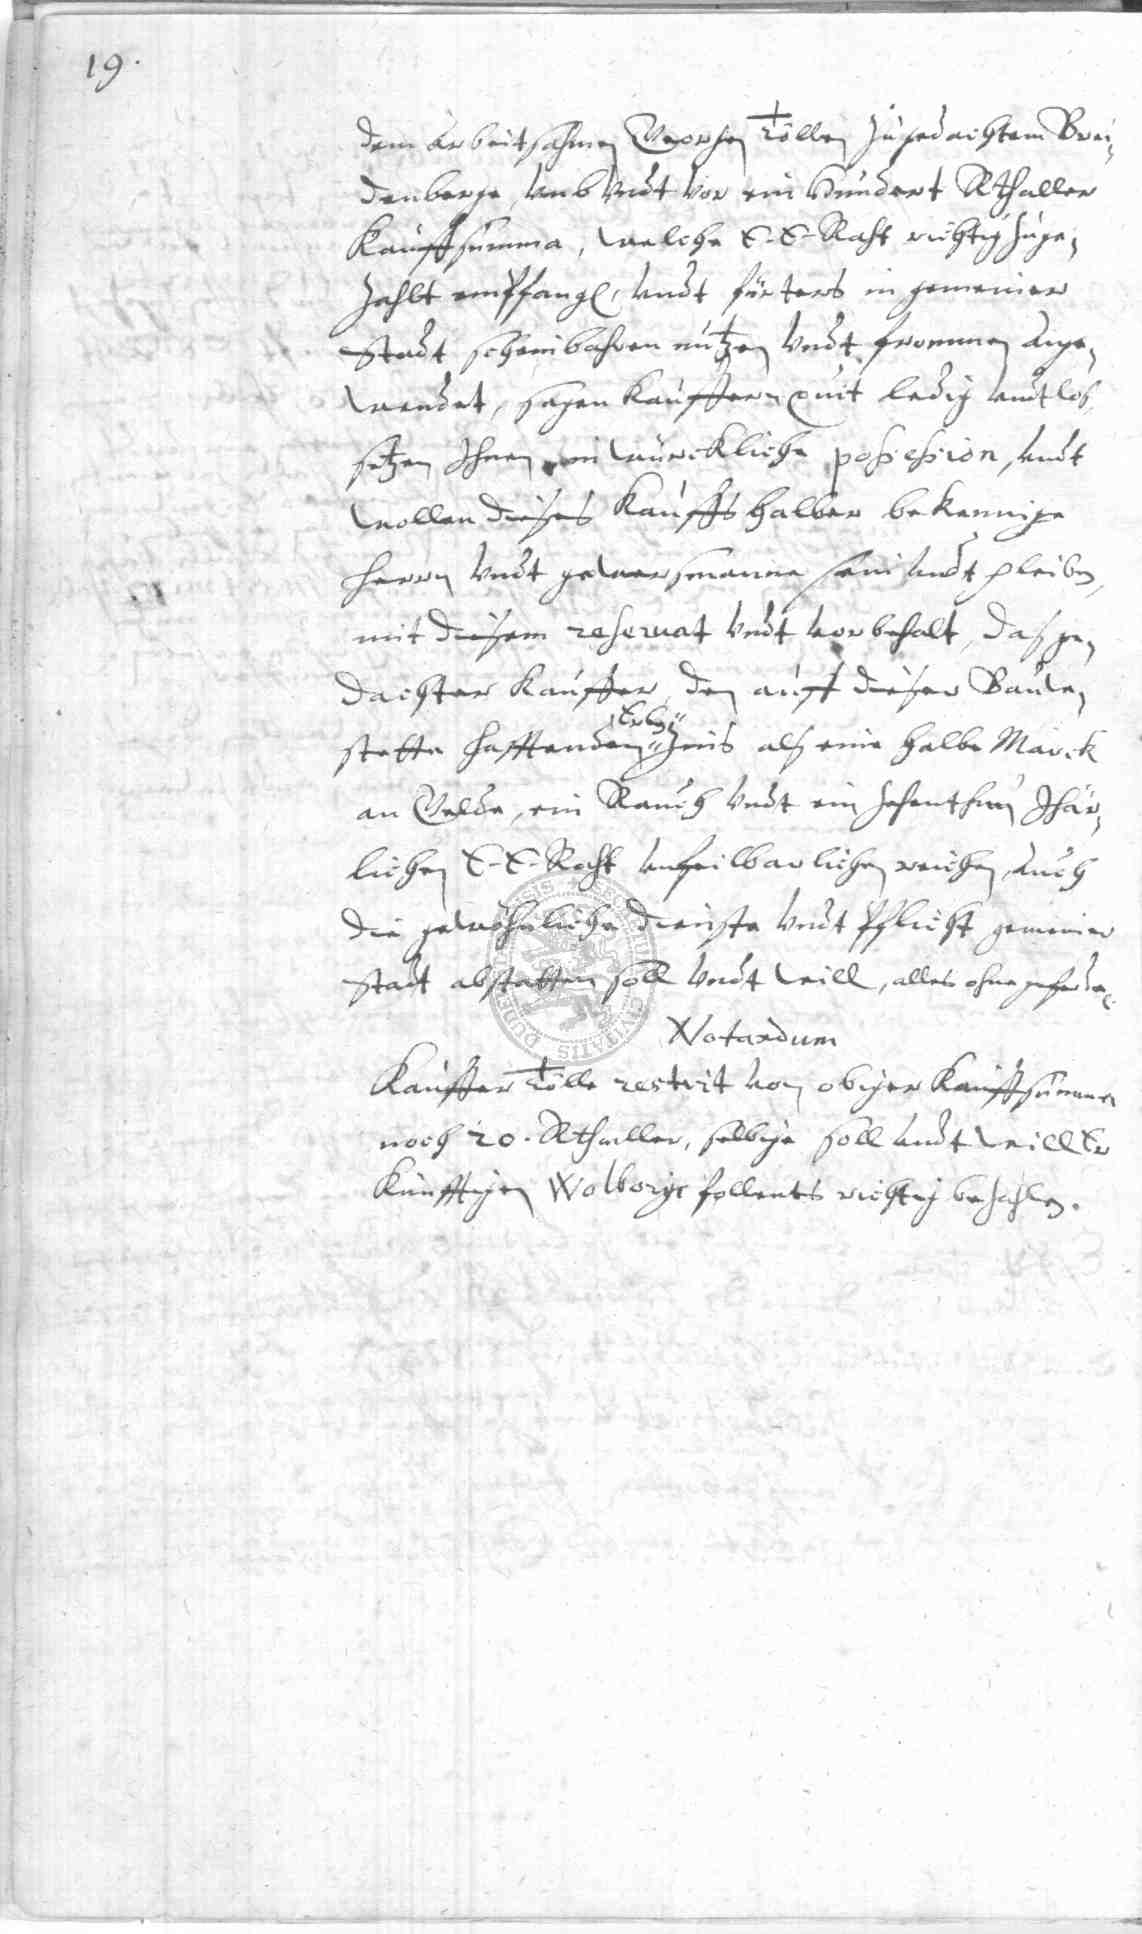 19.
dem Arbeitsahmen Georgen Tölle zu gedachtem Brei„
denberge, umb undt vor ein Hundert Rthaller
Kauffsumma, welche E. E. Raht richtig zuge„
zahlt empfangen, undt fürters in gemeiner
Stadt scheinbahren nutzen undt frommen ange„
wendet, sagen Kauffern quit ledig undt los,
setzen Ihnen in würckliche possession, undt
wollen dieses Kauffs halber bekennige
Herrn undt gewersmanne sein undt pleiben,
mit diesem reservat undt vorbehalt, daß ge„
dachter Kauffer, den auff dieser Baude„
stette hafftenden Erben Zins alß eine halbe Marck
an Gelde, ein Rauch undt ein Zehenthun Jhär„
lichen E. E. Raht unfeilbarlichen reichen, auch
die gewöhnliche Dienste undt Pflicht gemeiner
Stadt abstatten soll undt will, alles ohne geferde.
Notandum
Kauffer Tölle restirt von obiger Kauffsummen
noch 20. Rthaller, selbige soll undt will Er
Künfftigen Wolborge follents richtig bezahlen.
SECRETUM CIVITATIS DUDERSTADENSIS